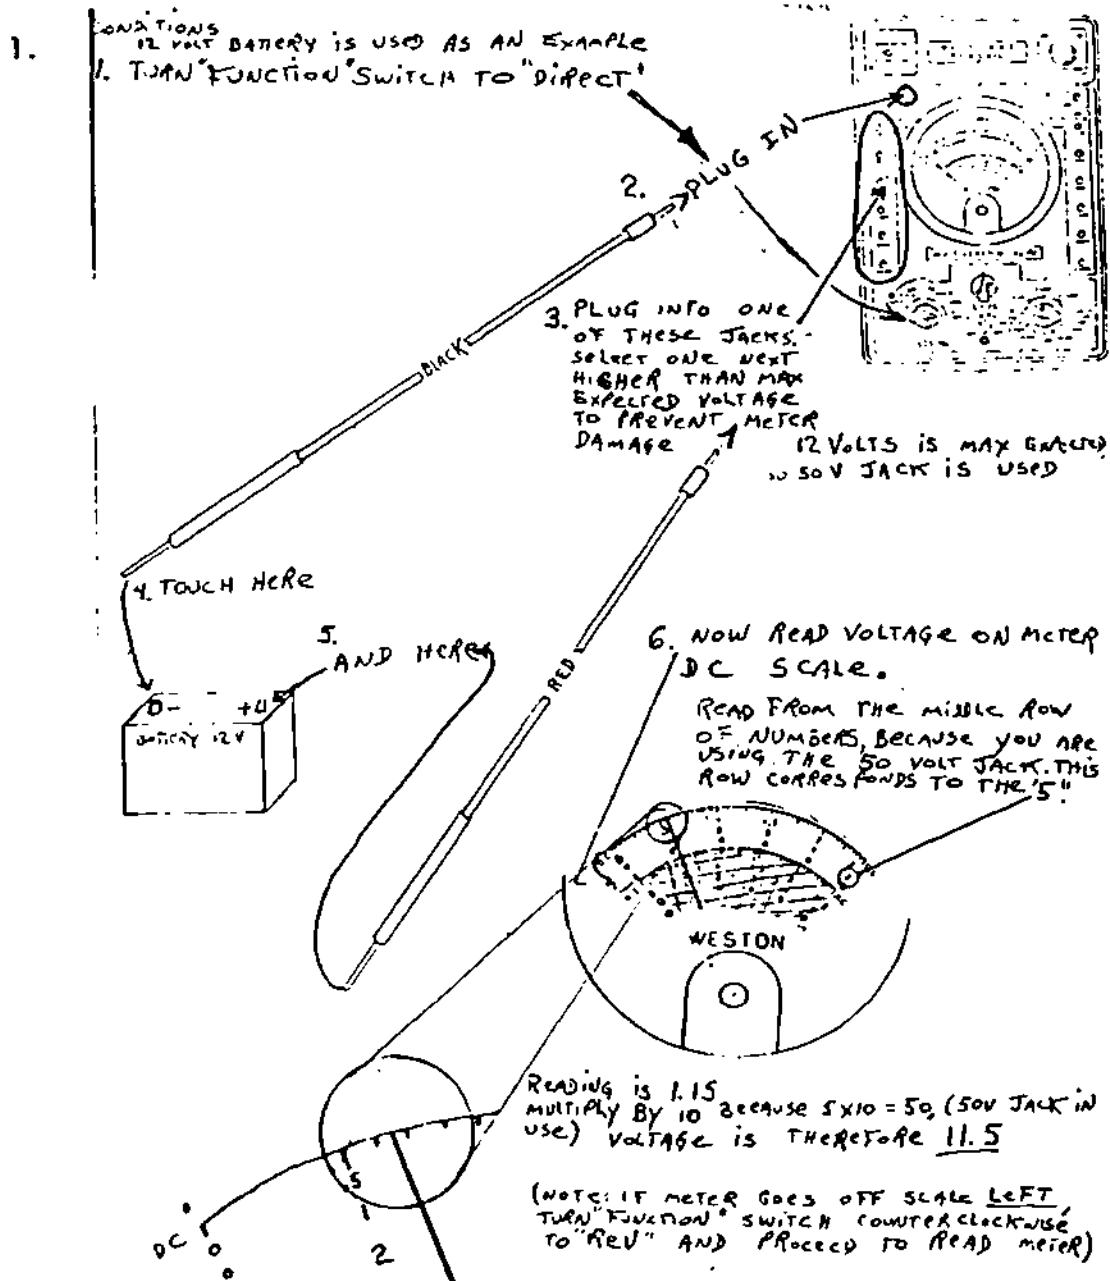 1.
CONDITIONS
12 VOLT BATTERY IS USED AS AN EXAMPLE
1. TURN "FUNCTION" SWITCH TO "DIRECT"
2.
PLUG IN
BLACK
3. PLUG INTO ONE
OF THESE JACKS.
SELECT ONE NEXT
HIGHER THAN MAX
EXPECTED VOLTAGE
TO PREVENT METER
DAMAGE
12 VOLTS IS MAX EXPECTED,
SO 50V JACK IS USED
4. TOUCH HERE
5.
AND HERE
RED
-
+
BATTERY 12V
6. NOW READ VOLTAGE ON METER
DC SCALE.
READ FROM THE MIDDLE ROW
OF NUMBERS, BECAUSE YOU ARE
USING THE 50 VOLT JACK. THIS
ROW CORRESPONDS TO THE "5".
WESTON
READING IS 1.15
MULTIPLY BY 10 BECAUSE 5X10=50, (50V JACK IN
USE) VOLTAGE IS THEREFORE 11.5
(NOTE: IF METER GOES OFF SCALE LEFT,
TURN "FUNCTION" SWITCH COUNTERCLOCKWISE
TO "REV" AND PROCEED TO READ METER)
5
1
2
DC
0